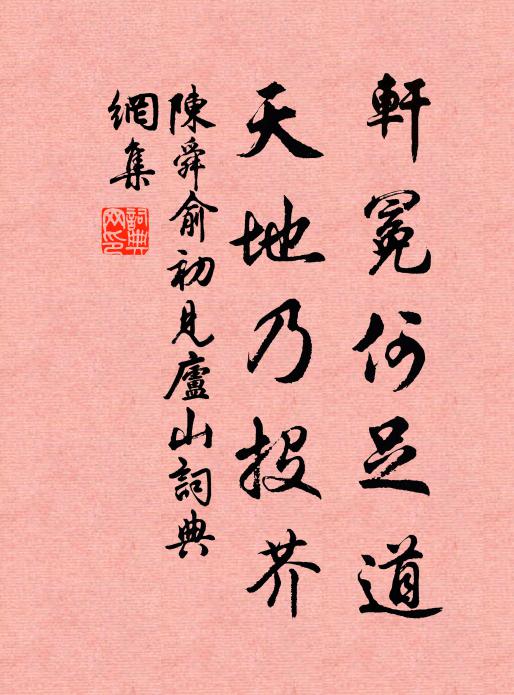 軒冕何足道
天地乃投芥
陳舜俞初見廬山詞典
網集
詞典網印